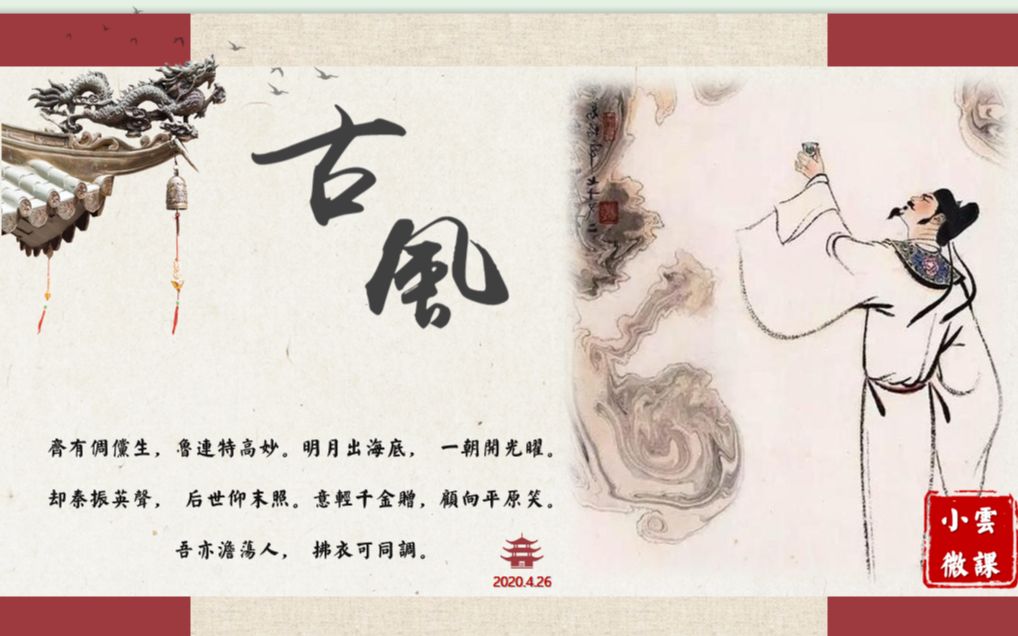 古
風
齊有倜儻生，魯連特高妙。明月出海底， 一朝開光曜。
却秦振英聲， 后世仰末照。意輕千金贈，顧向平原笑。
吾亦澹蕩人， 拂衣可同調。
2020.4.26
小雲
微課